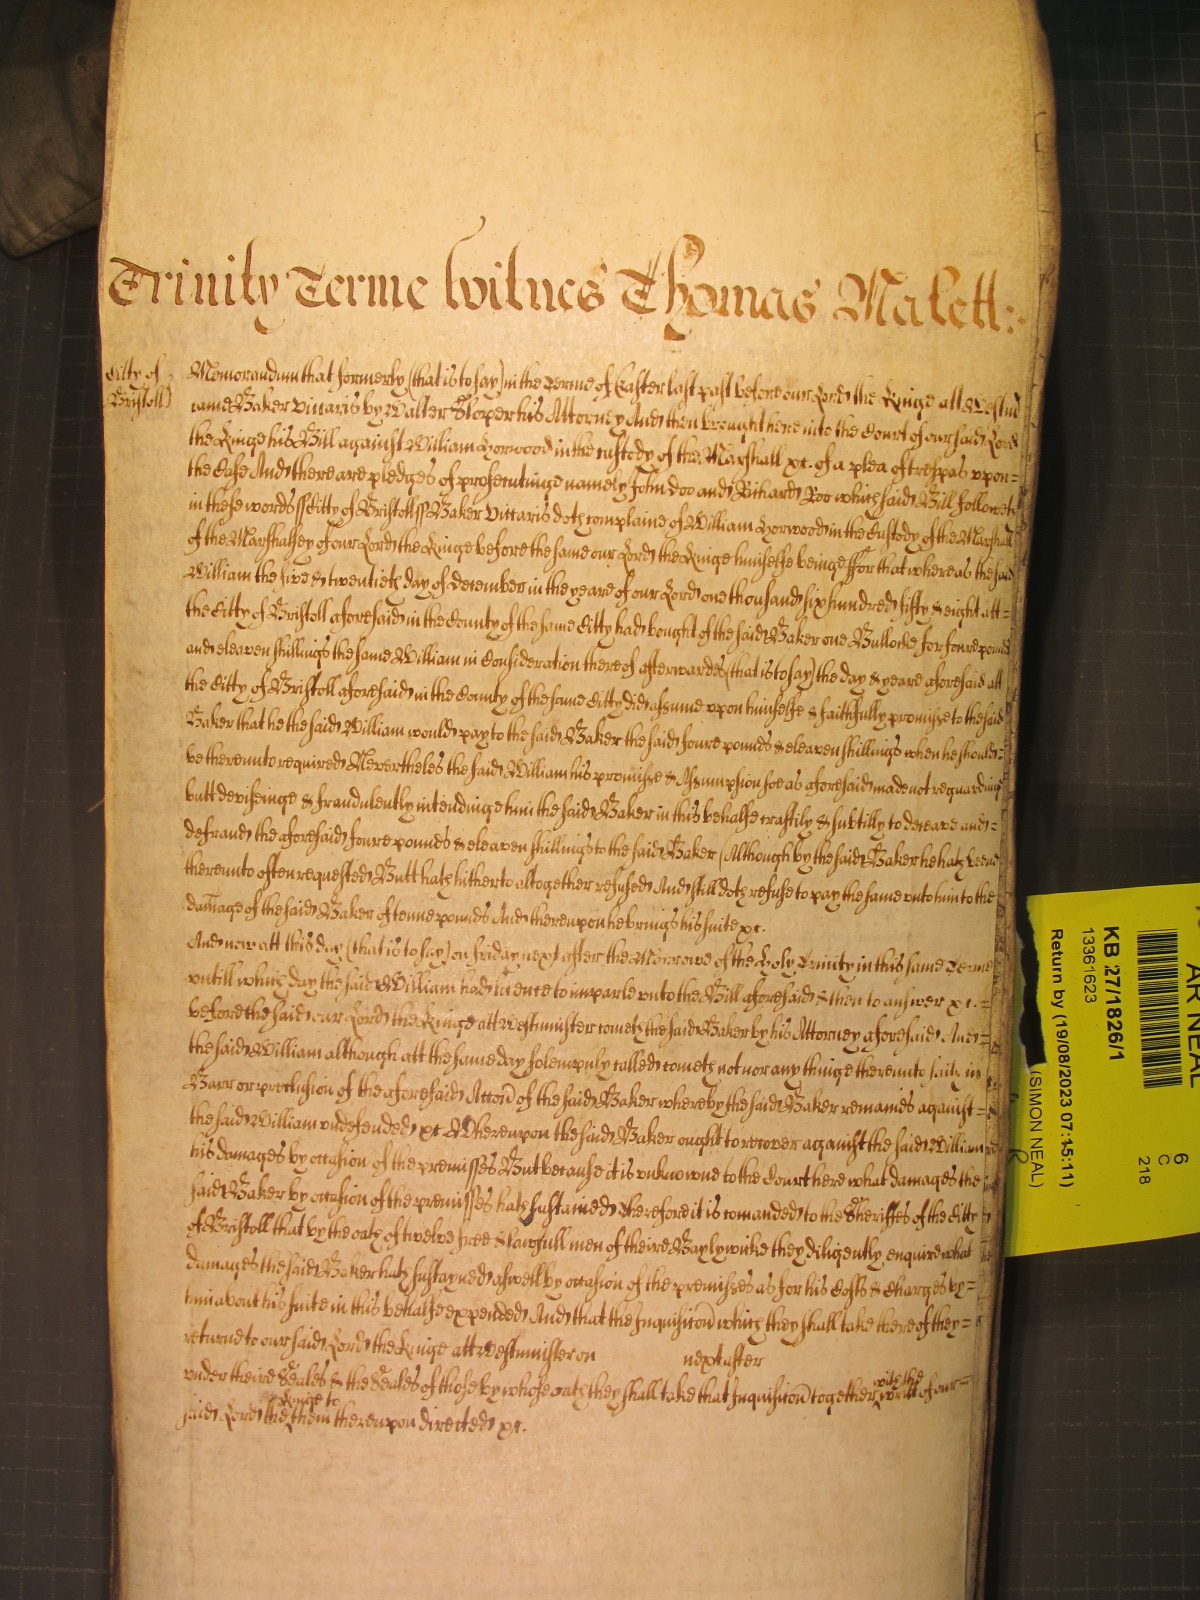 Trinity Terme Witnes Thomas Malett:
Citty of
Bristoll)
Memorandum that formerly (that is to say) in the Terme of Easter last past before our Lord the Kinge att Westm
came Baker Viccaris by Walter Sloper his Attorney And then brought here into the Court of our said Lord
the Kinge his Bill against William Horwood in the custody of the Marshall &c. of a plea of trespas upon=
the Case And there are pledges of prosecutinge namely John Doo and Richard Roo which said Bill followeth
in these words ss Citty of Bristoll ss Baker Viccaris doth complaine of William Horwood in the Custody of the Marshall
of the Marshalsey of our Lord the Kinge before the same our Lord the Kinge himselfe beinge ffor that whereas the said
William the five & twentieth day of December in the yeare of our Lord one thousand six hundred fifty & eight att=
the Citty of Bristoll aforesaid in the County of the same Citty had bought of the said Baker one Bullocke for foure pounds
and eleaven shillings the same William in Consideration thereof afterwardes (that is to say) the day & yeare aforesaid att
the Citty of Bristoll aforesaid in the County of the same Citty did assume upon himselfe & faithfully promisse to the said
Baker that he the said William would pay to the said Baker the said foure pounds & eleaven shillings when he should=
be thereunto required Nevertheles the said William his promisse & Assumpsion soe as aforesaid made not reguardinge
butt deviseinge & fraudulently intendinge him the said Baker in this behalfe craftily & subtilly to deceave and=
defraud the aforesaid foure pounds & eleaven shillings to the said Baker (Although by the said Baker he hath beene
thereunto often requested) Butt hath hitherto altogether refused And still doth refuse to pay the same unto him to the
damage of the said Baker of tenne pounds And thereupon he brings his suite &c.
And now att this day (that is to say) on Friday next after the Morrowe of the Holy Trinity in this same Terme
untill which day the said William had licence to imparle unto the Bill aforesaid & then to answer &c.=
before the said our Lord the Kinge att Westminster cometh the said Baker by his Attorney aforesaid And=
the said William although att the same day solempnly called cometh not nor any thinge thereunto saith in
Barr or preclusion of the aforesaid Accon of the said Baker whereby the said Baker remaines against=
the said William undefended &c Whereupon the said Baker ought to recover against the said William
his damages by occasion of the premisses But because it is unknowne to the Court here what damages the
said Baker by occasion of the premisses hath sustained Therefore it is comanded to the Sheriffes of the Citty
of Bristoll that by the oath of twelve free & lawfull men of theire Baylywicke they diligently enquire what
damages the said Baker hath sustayned aswell by occasion of the premisses as for his Costs & Charges by=
him about his suite in this behalfe expended And that the Inquisicon which they shall take thereof they=
returne to our said Lord the Kinge att Westminster on next after
under theire Seales & the Seales of those by whose oath they shall take that Inquisicon together with the writt of our=
said Lord the Kinge to them thereupon directed &c.
AR NEAL
KB 27/1826/1
13961623
Return by (19/08/2023 07:15:11)
(SIMON NEAL)
6
C
218